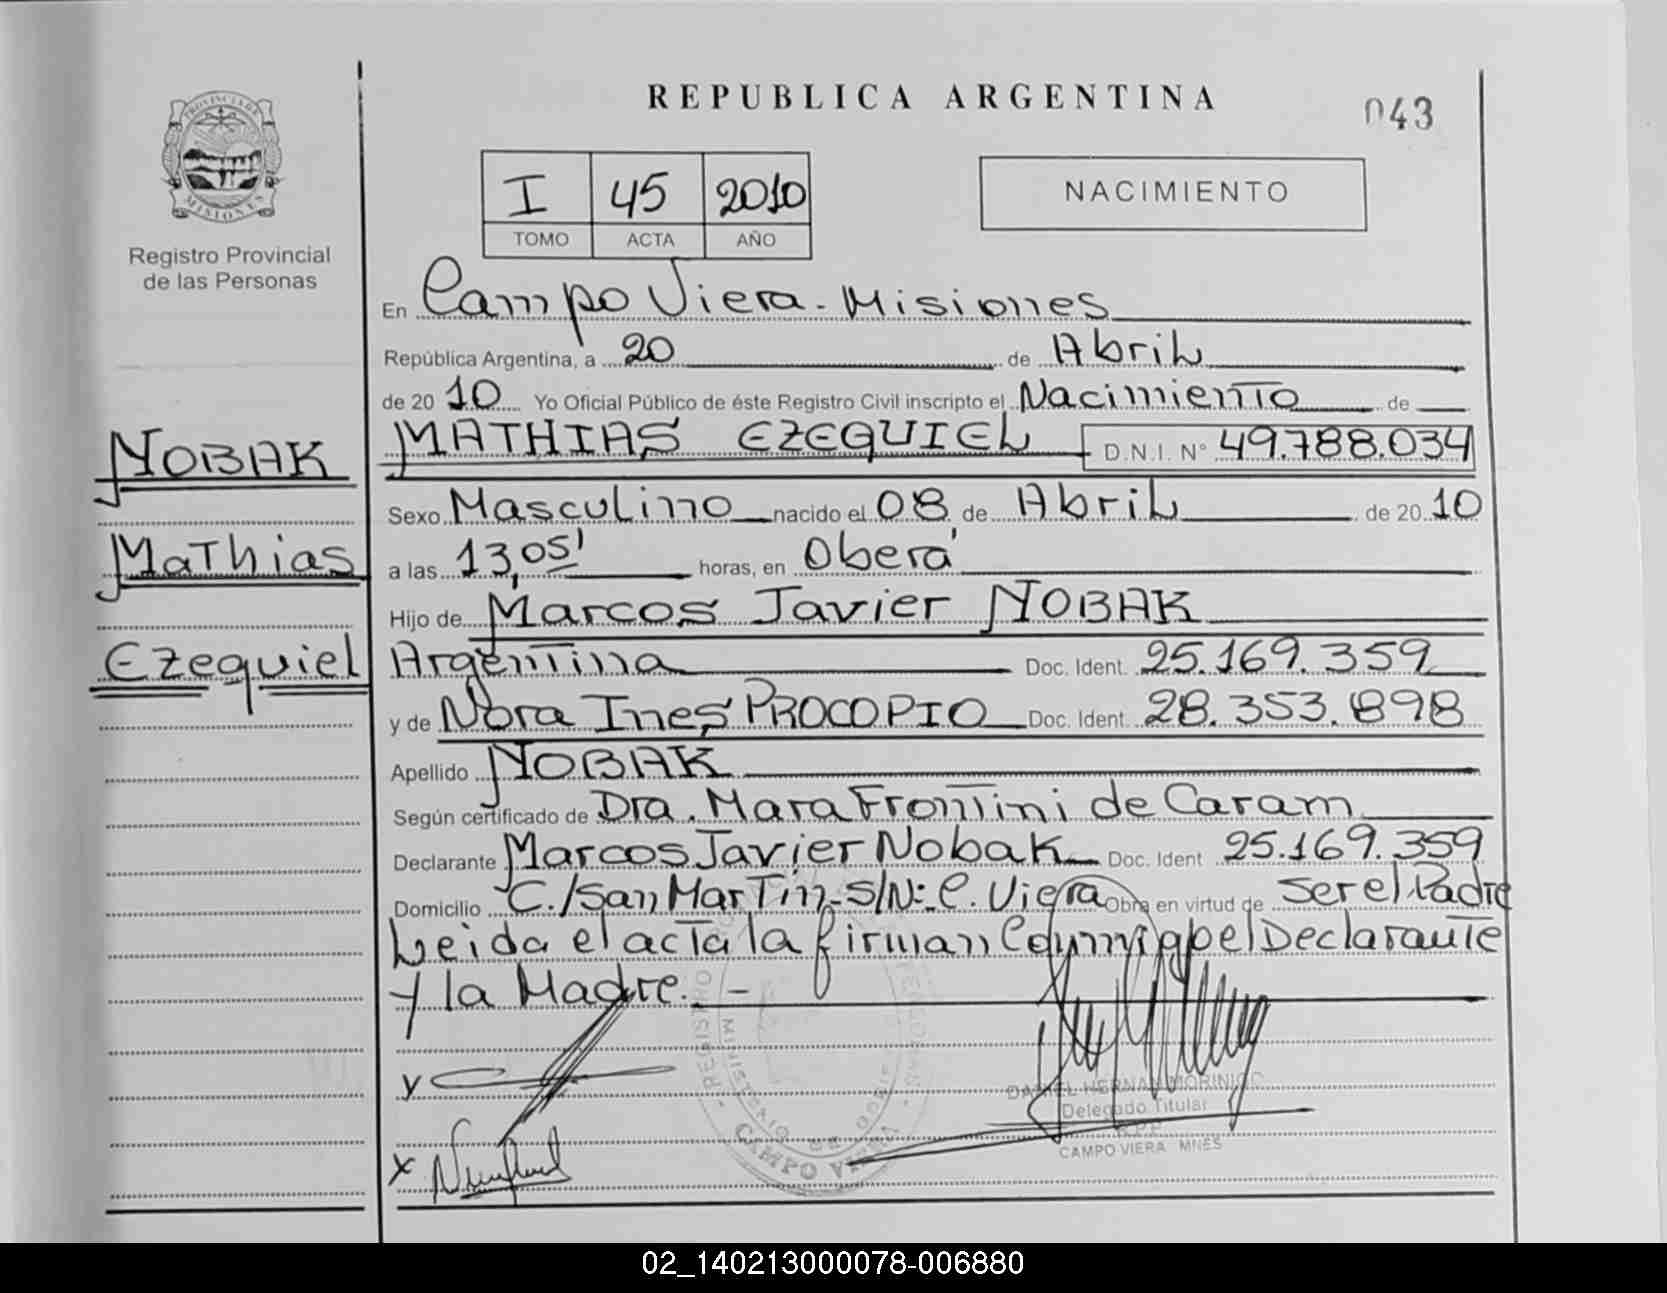 REPUBLICA ARGENTINA
043
PROVINCIA DE
MISIONES
Registro Provincial
de las Personas
I 45 2010
TOMO ACTA AÑO
NACIMIENTO
En Campo Viera - Misiones
República Argentina, a 20 de Abril
de 2010 Yo Oficial Público de éste Registro Civil inscripto el Nacimiento de
NOBAK
Mathias
Ezequiel
MATHIAS EZEQUIEL D.N.I. N° 49.788.034
Sexo Masculino nacido el 08 de Abril de 2010
a las 13,05' horas, en Oberá
Hijo de Marcos Javier NOBAK
Argentina Doc. Ident. 25.169.359
y de Nora Ines PROCOPIO Doc. Ident. 28.353.898
Apellido NOBAK
Según certificado de Dra. Mara Frontini de Caram
Declarante Marcos Javier Nobak Doc. Ident 25.169.359
Domicilio C./San Martin - S/N: C. Viera Obra en virtud de Ser el Padre
Leida el acta la firman Conmigo el Declarante
y la Madre. -
DANIEL HERNAN MORINIGO
Delegado Titular
R.P.P.
CAMPO VIERA MNES
REGISTRO
MINISTERIO DE GOBIE
CAMPO VIERA
02_140213000078-006880